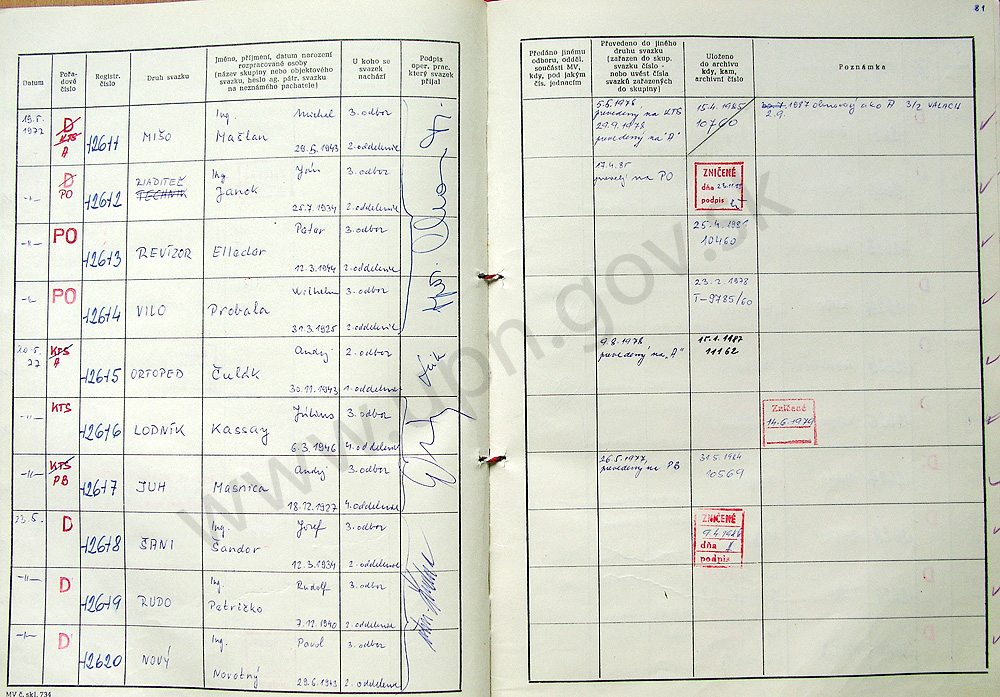 81
Datum
Pořa-
dové
číslo
Registr.
číslo
Druh svazku
Jméno, příjmení, datum narození
rozpracované osoby
(název skupiny nebo objektového
svazku, heslo ag. pátr. svazku
na neznámého pachatele)
U koho se
svazek
nachází
Podpis
oper. prac.
který svazek
přijal
Předáno jinému
odboru, odděl.
součásti MV,
kdy, pod jakým
čís. jednacím
Převedeno do jiného
druhu svazku
(zařazen do skup.
svazku číslo -
nebo uvést čísla
svazků zařazených
do skupiny)
Uloženo
do archivu
kdy, kam,
archivní číslo
Poznámka
19.5.
1977
D
KTS
A
12611
MIŠO
Ing. Michal
Mačlan
3. odbor
2. oddelenie
5.5.1978
prevedený na KTS
29.9.1978
prevedený na "A"
15.4.1985
10760
1987 obnovený ako A 3/2 VALACH
2.9.
-"-
D
PO
12612
RIADITEĽ
TECHNIK
Ing. Ján
Janok
25.7.1934
3. odbor
2. oddelenie
17.4.85
na PO
ZNIČENÉ
dňa
podpis
-"-
PO
12613
REVÍZOR
Peter
Elleder
12.3.1944
3. odbor
2. oddelenie
25.4.1981
10460
-"-
PO
12614
VILO
Wilhelm
Probala
31.3.1925
3. odbor
2. oddelenie
23.2.1978
T-9785/60
20.5.
77
KTS
A
12615
ORTOPED
Andrej
Čulák
30.11.1943
2. odbor
1. oddelenie
9.8.1978
prevedený na "A"
15.1.1987
11162
-"-
KTS
12616
LODNÍK
Július
Kassay
6.3.1946
3. odbor
4. oddelenie
Zničené
14.6.1979
-"-
KTS
PB
12617
JUH
Andrej
Masnica
18.12.1927
3. odbor
4. oddelenie
26.5.1977
prevedený na PB
31.5.1984
10569
23.5.
D
12618
ŠANI
Ing. Jozef
Šandor
12.3.1934
3. odbor
2. oddelenie
ZNIČENÉ
dňa
podpis
-"-
D
12619
RUDO
Ing. Rudolf
Petrižko
7.12.1940
3. odbor
2. oddelenie
-"-
D
12620
NOVÝ
Ing. Pavol
Novotný
29.6.1943
3. odbor
2. oddelenie
MV č. skl. 734
www.upn.gov.sk